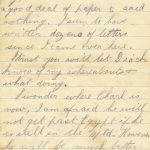 a good deal of paper & said
nothing. I seem to have
written dozens of letters
since I came over here.
Must you will let Dsach
know of my whereabouts &
what doing.
I wonder where Charl is
now, I am afraid he will
not get past Egypt if he
is still in the
be much better